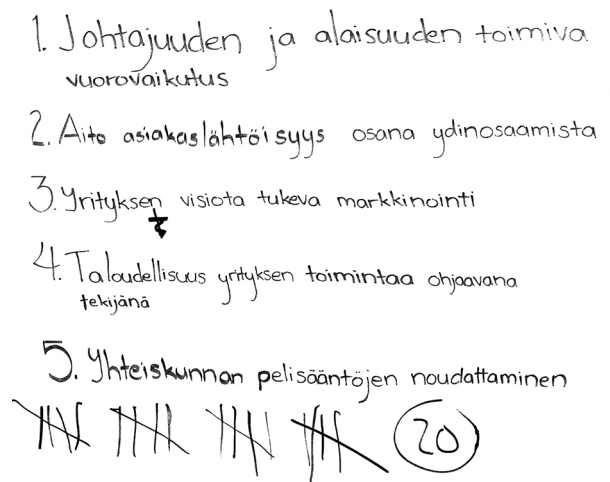 1. Johtajuuden ja alaisuuden toimiva
vuorovaikutus
2. Aito asiakaslähtöisyys osana ydinosaamista
3. Yrityksen visiota tukeva markkinointi
4. Taloudellisuus yrityksen toimintaa ohjaavana
tekijänä
5. Yhteiskunnan pelisääntöjen noudattaminen
20